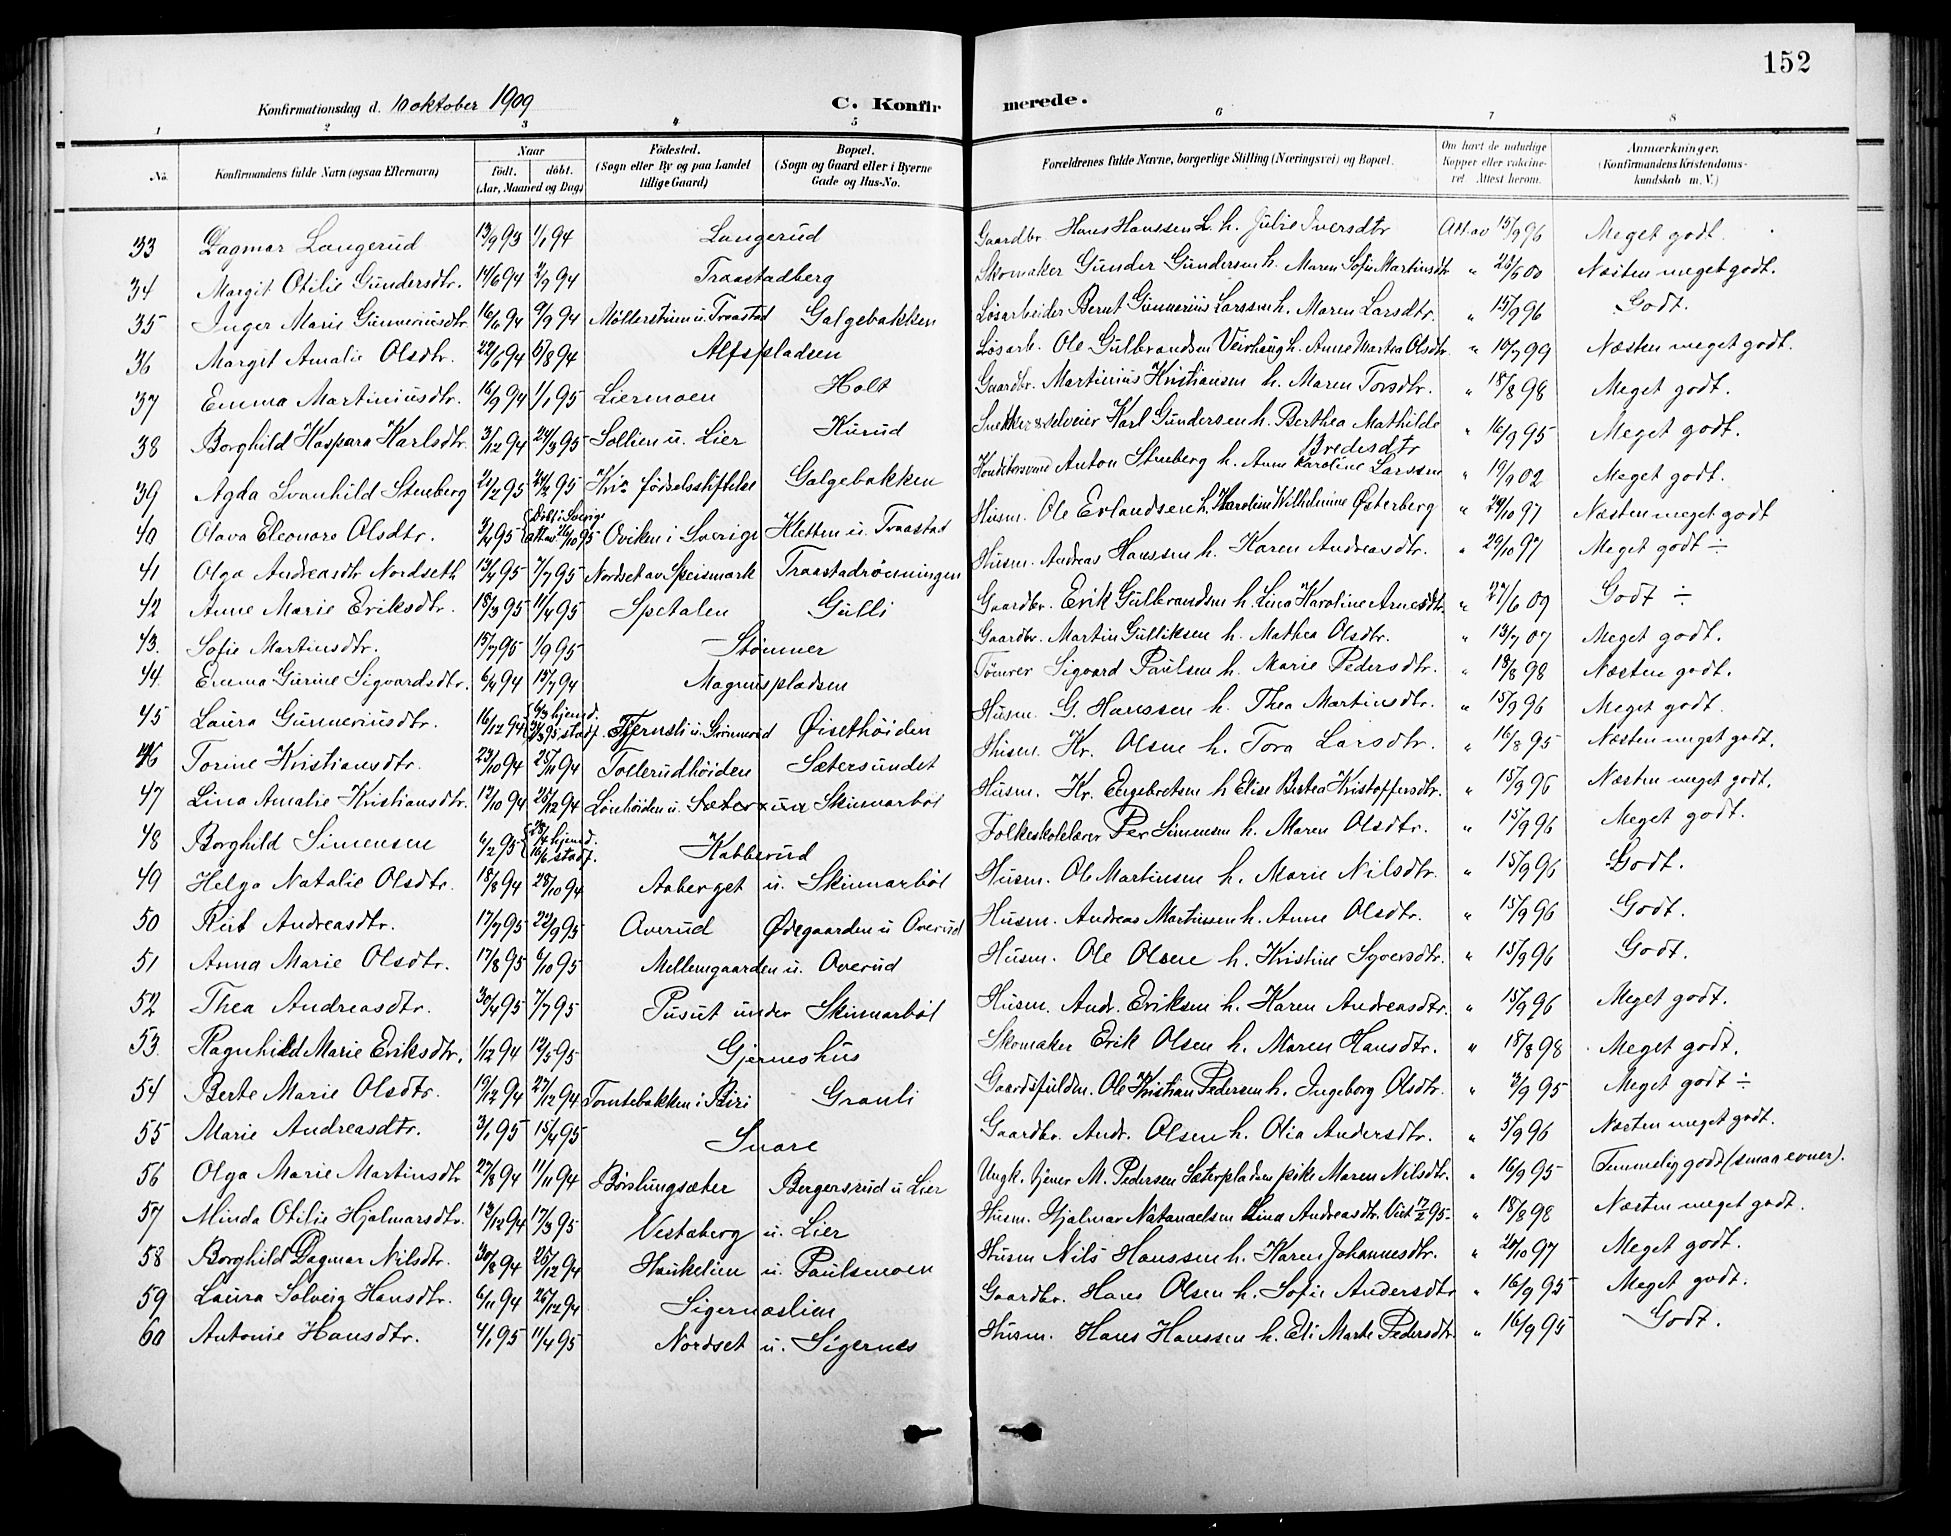 152
Konfirmationsdag d. 10 oktober 1909 C. Konfirmerede.
1 2 3 4 5 6 7 8
No. Konfirmandens fulde Navn (ogsaa Efternavn) Naar födt. döbt. (Aar, Maaned og Dag) Födested. (Sogn eller By og paa Landet tillige Gaard) Bopæl. (Sogn og Gaard eller i Byerne Gade og Hus-No. Forældrenes fulde Navne, borgerlige Stilling (Næringsvei) og Bopæl. Om havt de naturlige Kopper eller vaccineret. Attest herom. Anmærkninger. (Konfirmandens Kristendomskundskab m. V.)
33 Dagmar Langerud 13/9 93 1/1 94 Langerud Gaardbr. Hans Hanssen L. h. Julie Iversdtr Att. av 15/9 96 Meget godt.
34 Margit Otilie Gundersdtr. 14/6 94 2/9 94 Traastadberg Skomaker Gunder Gundersen h. Maren Sofie Martinsdtr " 26/5 00 Næsten meget godt.
35 Inger Marie Gunneriusdtr 16/6 94 9/9 94 Möllerstuen u. Traastad Galgebakken Løsarbeider Bernt Gunnerius Larssen h. Maren Larsdtr. " 15/9 96 Godt.
36 Margit Amalie Olsdtr. 22/6 94 5/8 94 Alfspladsen Løsarb. Ole Gulbrandsen Veirhaug h. Anne Martea Olsdtr. " 10/7 99 Næsten meget godt.
37 Emma Martiniusdtr. 16/9 94 1/1 95 Liermoen Holt Gaardbr. Martinius Kristiansen h. Maren Torsdtr. " 18/8 98 Meget godt.
38 Borghild Kaspara Karlsdtr. 3/12 94 24/3 95 Sollien u. Lier Kurud Snekker & selveier Karl Gundersen h. Berthea Mathilde Bredesdtr " 16/9 95 Meget godt.
39 Agda Svanhild Stenberg 2/2 95 24/2 95 Kr.a fødselsstiftelse Galgebakken Konditorsvend Anton Stenberg h. Anna Karoline Larssen " 19/9 02 Meget godt.
40 Olava Eleonore Olsdtr. 3/4 95 Döbt i Sverige Att. av 26/10 95 Oviken i Sverige Kletten u. Traastad Husm. Ole Erlandsen h. Karoline Wilhelmine Østerberg " 29/10 97 Næsten meget godt
41 Olga Andreasdtr Nordseth 13/4 95 7/7 95 Nordset av Speismark Traastadrönningen Husm. Andreas Hanssen h. Karen Andreasdtr. " 29/10 97 Meget godt ÷
42 Anne Marie Eriksdtr. 18/3 95 11/4 95 Spetalen Gulli Gaardbr. Erik Gulbrandsen h. Lina Karoline Arnesdtr. " 27/6 09 Godt ÷
43. Sofie Martinsdtr. 15/7 95 1/9 95 Stømner Gaardbr. Martin Gulliksen h. Mathea Olsdtr. " 13/7 07 Meget godt.
44. Emma Gurine Sigvardsdtr. 6/4 94 15/7 94 Magnuspladsen Tömrer Sigvard Paulsen h. Marie Pedersdtr. " 18/8 98 Næsten godt.
45 Laura Gunneriusdtr. 16/12 94 6/3 hjemd. 3/6 95 stadf. Tjernsli u. Grönnerud Øisethöiden Husm. G. Hanssen h. Thea Martinsdtr. " 15/9 96 Meget godt.
46 Torine Kristiansdtr. 23/10 94 25/11 94 Tollerudhöiden Sætersundet Husm. Kr. Olsen h. Tora Larsdtr. " 16/8 95 Næsten meget godt.
47 Lina Amalie Kristiansdtr. 12/10 94 25/12 94 Løiehöiden u. Skinnarböl Husm. Kr. Engebretsen h Elise Bertea Kristoffersdtr. " 15/9 96 Næsten meget godt.
48 Borghild Simensen 6/2 95 28/4 hjemd. 16/6 stadf. Kabberud Folkeskolelærer Per Simensen h. Maren Olsdtr. " 15/9 96 Meget godt.
49 Helga Natalie Olsdtr. 18/8 94 28/10 94 Aaberget u. Skinnarböl Husm. Ole Martinsen h. Marie Nilsdtr. " 15/9 96 Godt.
50 Rut Andreasdtr. 17/7 95 22/9 95 Overud Ødegaarden u Overud Husm. Andreas Martinsen h. Anne Olsdtr. " 15/9 96 Godt.
51 Anna Marie Olsdtr. 17/8 95 6/10 95 Mellemgaarden u. Overud Husm. Ole Olsen h. Kristine Syversdtr. " 15/9 96 Godt.
52 Thea Andreasdtr. 30/4 95 7/7 95 Pusut under Skinnarböl Husm. Andr. Eriksen h. Karen Andreasdtr. " 15/9 96 Meget godt.
53. Ragnhild Marie Eriksdtr. 1/12 94 12/5 95 Gjerneshus Skomaker Erik Olsen h. Maren Hansdtr. " 18/8 98 Meget godt.
54 Berte Marie Olsdtr. 19/12 94 27/12 94 Tomtebakken i Biri Granli Gaardsfuldm. Ole Kristian Pedersen h. Ingeborg Olsdtr. " 3/9 95 Meget godt ÷
55 Marie Andreasdtr. 3/1 95 15/4 95 Snare Gaardbr. Andr. Olsen h. Olia Andersdtr. " 5/9 96 Næsten meget godt.
56 Olga Marie Martinsdtr 27/8 94 11/11 94 Börslungsæter Bergersrud u Lier Ungk. tjener M. Pedersen Sæterpladsen pike Maren Nilsdtr. " 16/9 95 Temmelig godt (smaa evner).
57 Minda Otilie Hjalmarsdtr. 13/12 94 17/3 95 Vestaberg u. Lier Husm. Hjalmar Natanaelsen Lina Andreasdtr. Viet 17/2 95 " 18/8 98 Næsten meget godt.
58 Borghild Dagmar Nilsdtr. 30/8 94 26/12 94 Haukelien u. Paulsmoen Husm Nils Hanssen h. Karen Johannesdtr. " 28/10 97 Meget godt.
59 Laura Solveig Hansdtr. 6/11 94 26/12 94 Sigernæslien Gaardbr. Hans Olsen h. Sofie Andersdtr " 16/9 95 Meget godt.
60 Antonie Hansdtr. 4/1 95 11/4 95 Nordset u. Sigernes Husm. Hans Hanssen h. Eli Marte Pedersdtr. " 16/9 95 Godt.